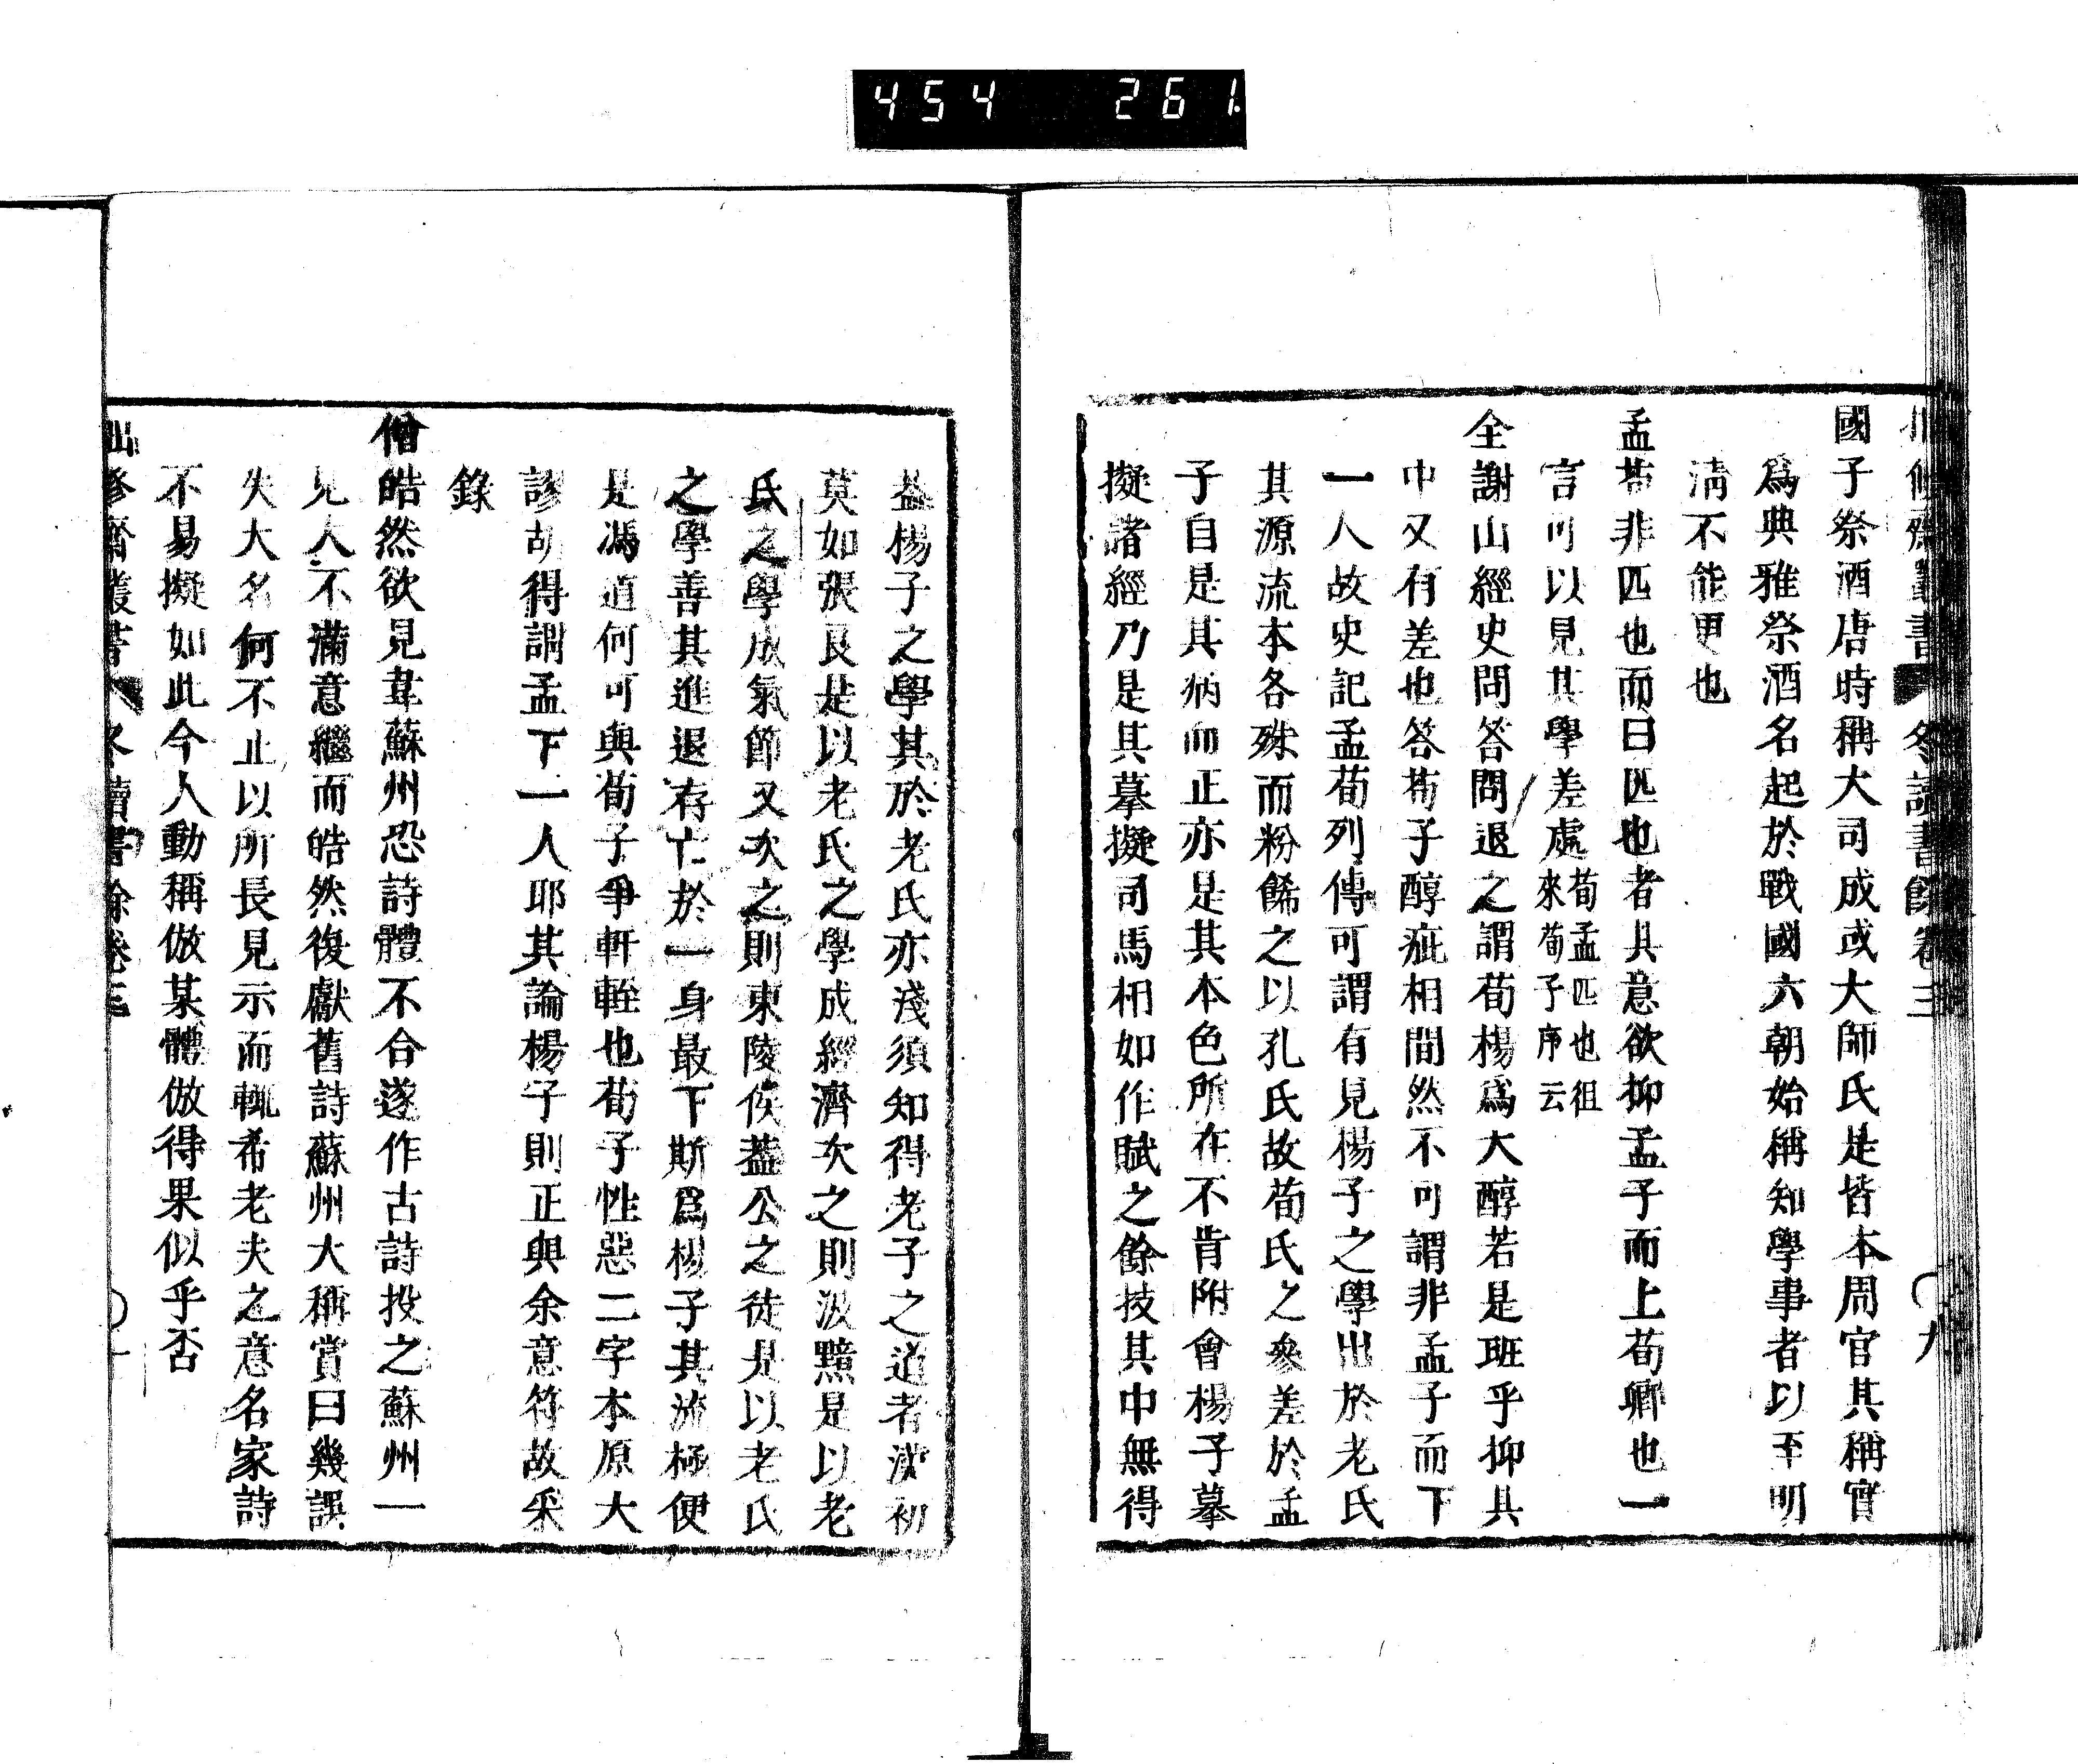 454 261
冬讀書餘卷三 九
國子祭酒唐時稱大司成或大師氏是皆本周官其稱實
爲典雅祭酒名起於戰國六朝始稱知學事者以至明
淸不能更也
孟荀非匹也而曰匹也者具意欲抑孟子而上荀卿也一
言可以見其學差處荀孟匹也徂
來荀子序云
全謝山經史問答問退之謂荀楊爲大醇若是班乎抑具
中又有差也答荀子醇疵相間然不可謂非孟子而下
一人故史記孟荀列傳可謂有見楊子之學出於老氏
其源流本各殊而粉餙之以孔氏故荀氏之參差於孟
子自是其病而正亦是其本色所在不肯附會楊子摹
擬諸經乃是其摹擬司馬相如作賦之餘技其中無得
葢楊子之學其於老氏亦淺須知得老子之道者漢初
莫如張良是以老氏之學成經濟次之則汲黯是以老
氏之學成氣節又次之則東陵侯葢公之徒是以老氏
之學善其進退存亡於一身最下斯爲楊子其流極便
是馮道何可與荀子爭軒輊也荀子性惡二字本原大
謬胡得謂孟下一人耶其論楊子則正與余意符故采
錄
僧皓然欲見韋蘇州恐詩體不合遂作古詩投之蘇州一
見人不滿意繼而皓然復獻舊詩蘇州大稱賞曰幾誤
失大名何不止以所長見示而輒希老夫之意名家詩
不易擬如此今人動稱倣某體倣得果似乎否
修齋叢書 冬讀書餘卷三 十